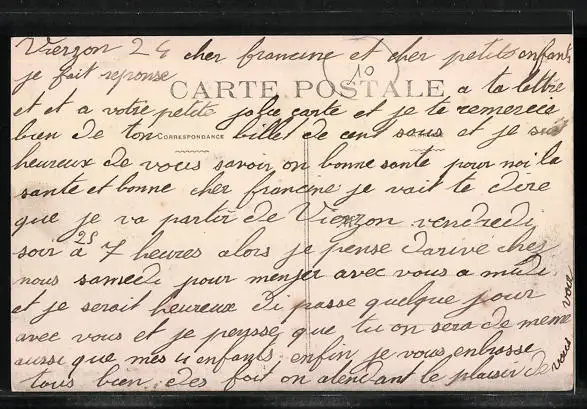 Vierzon 24 cher francine et cher petits enfants
je fait reponse
10
CARTE POSTALE
a ta lettre
et et a votre petite jolie carte et je te remercie
bien de ton billet de cent sous et je suis
CORRESPONDANCE
heureux de vous savoir on bonne sante pour moi la
sante et bonne cher francine je vait te dire
que je va partir de Vierzon vendredi
soir 25 a 7 heures alors je pense darive chez
nous samedi pour menger avec vous a midi
et je serait heureux di passe quelque jour
avec vous et je pensse que tu on sera de meme
aussi que mes 4 enfants enfin je vous enbrasse
tous bien des foit on atendant le plaisir de vous voir